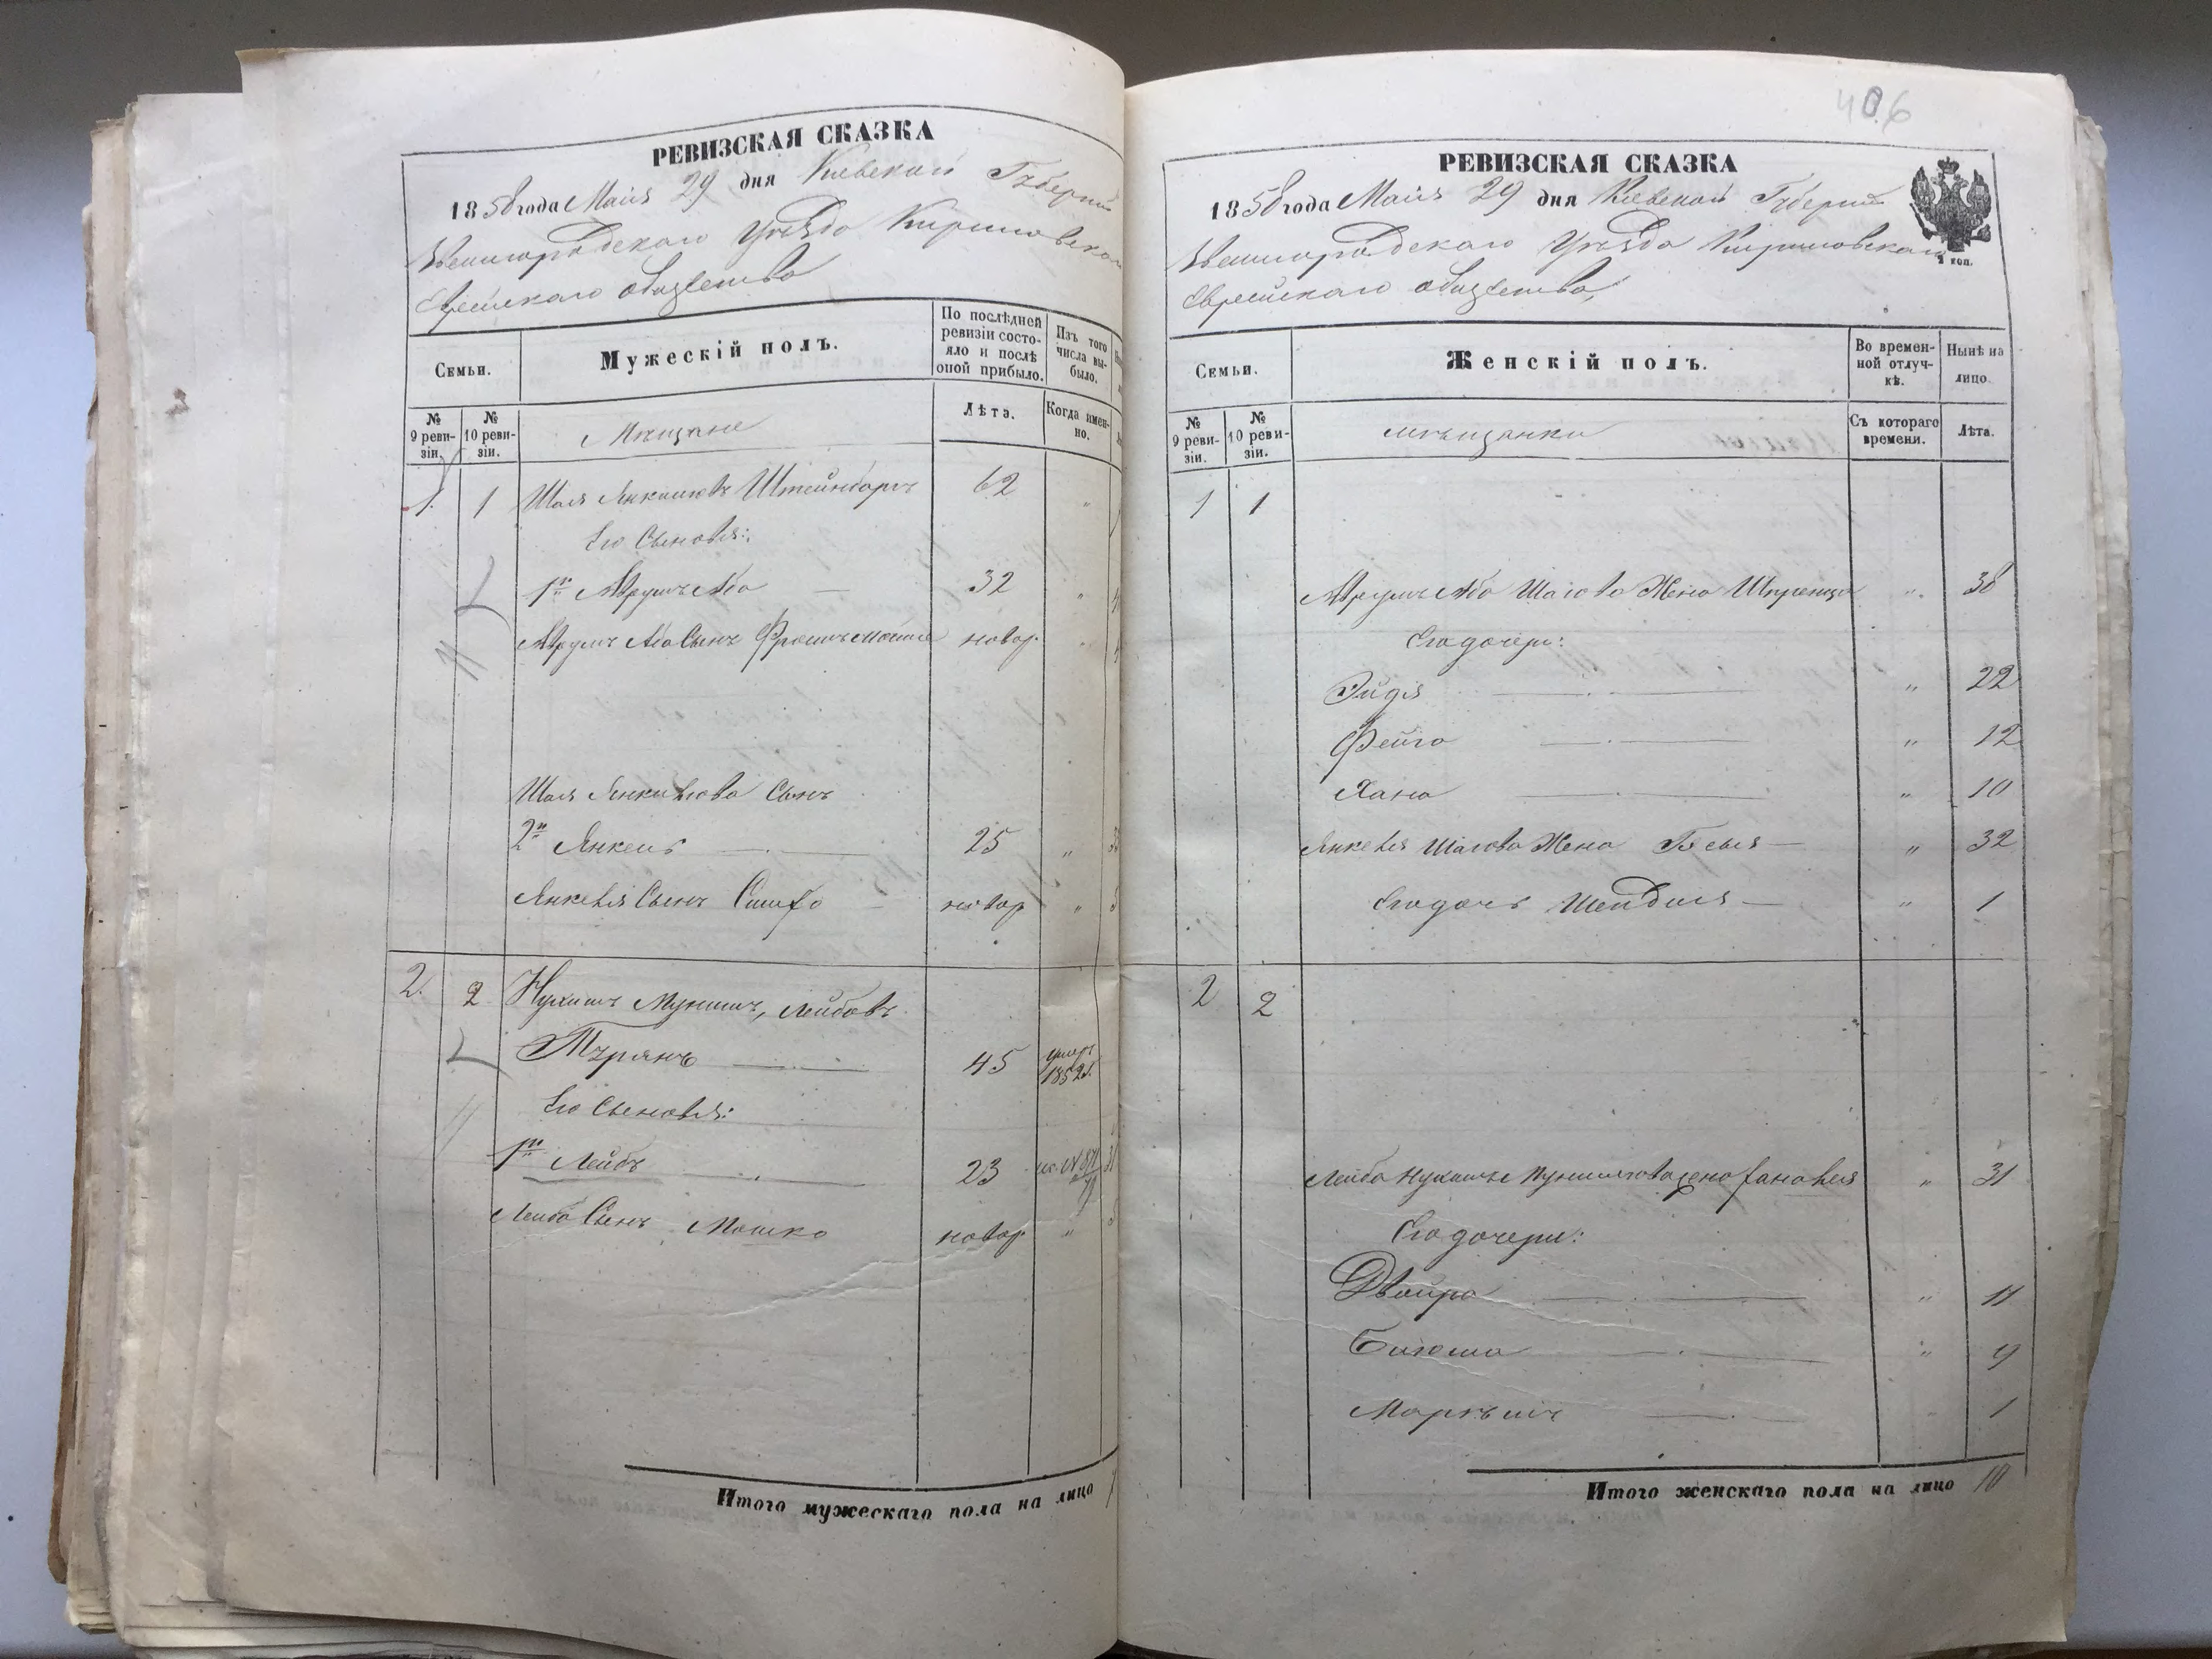 РЕВИЗСКАЯ СКАЗКА
1858 года Мая 29 дня Киевской Губерніи
Звенигородскаго Уѣзда Кириловскаго
Еврейскаго общества
Семьи.
Мужескій полъ.
По послѣдней ревизіи состояло и послѣ оной прибыло.
Изъ того числа выбыло.
№ 9 ревизіи.
№ 10 ревизіи.
Мѣщане
Лѣта.
Когда именно.
1. 1 Шая Янкилювъ Штейнбаргъ 62 "
Его Сыновья:
1й Аврумъ Аба 32 "
Аврумъ Аба Сынъ Фроимъ Мошко новор.
Шая Янкилюва Сынъ
2й Янкель 25 "
Янкеля Сынъ новор "
2. 2 Нухимъ Мунишъ, Лейбовъ
45 умеръ 1852 г.
Его Сыновья:
1й Лейбъ 23
Лейба Сынъ Мошко новор "
Итого мужескаго пола на лицо
406
РЕВИЗСКАЯ СКАЗКА
1858 года Мая 29 дня Киевской Губерніи
Звенигородскаго Уѣзда Кириловскаго
2 коп.
Еврейскаго общества,
Семьи.
Женскій полъ.
Во временной отлучкѣ.
Нынѣ на лицо.
№ 9 ревизіи.
№ 10 ревизіи.
мѣщанки
Съ котораго времени.
Лѣта.
1 1
Аврумъ Аба Шаюва Жена Шпренца " 38
Его дочери:
Эйдя " 22
Фейга " 12
Хана " 10
Янкеля Шаюва Жена Бѣсыя " 32
Его дочь Шендля " 1
2 2
Лейба жена " 31
Его дочери:
Двойра " 11
" 9
1
Итого женскаго пола на лицо 10